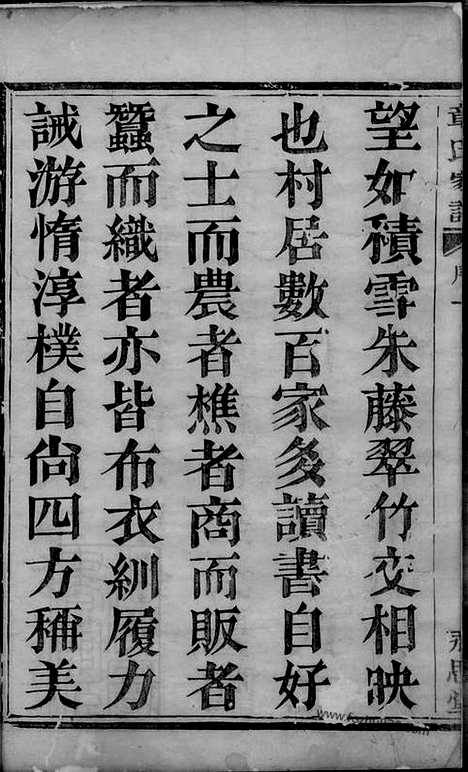 章氏家譜 序 一
望如積雪朱藤翠竹交相映
也村居數百家多讀書自好
之士而農者樵者商而販者
蠶而織者亦皆布衣紃履力
誡游惰淳樸自尙四方稱美